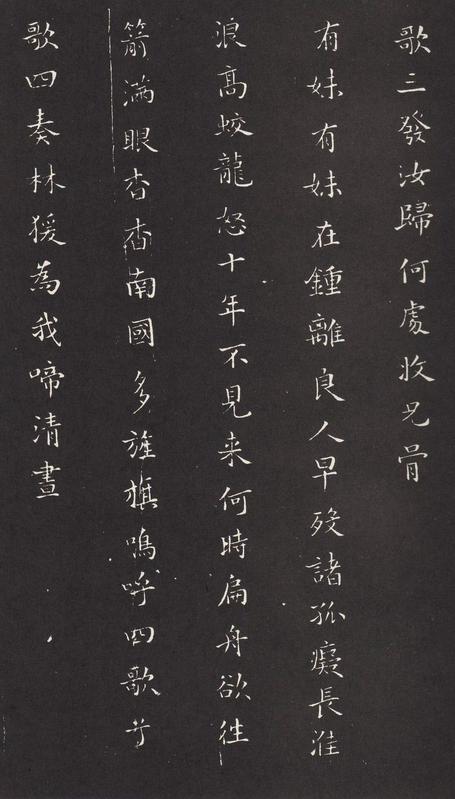 歌三發汝歸何處收兄骨
有妹有妹在鍾離良人早歿諸孤癡長淮
浪高蛟龍怒十年不見来何時扁舟欲往
箭滿眼杳杳南國多旌旗嗚呼四歌兮
歌四奏林猨為我啼清晝